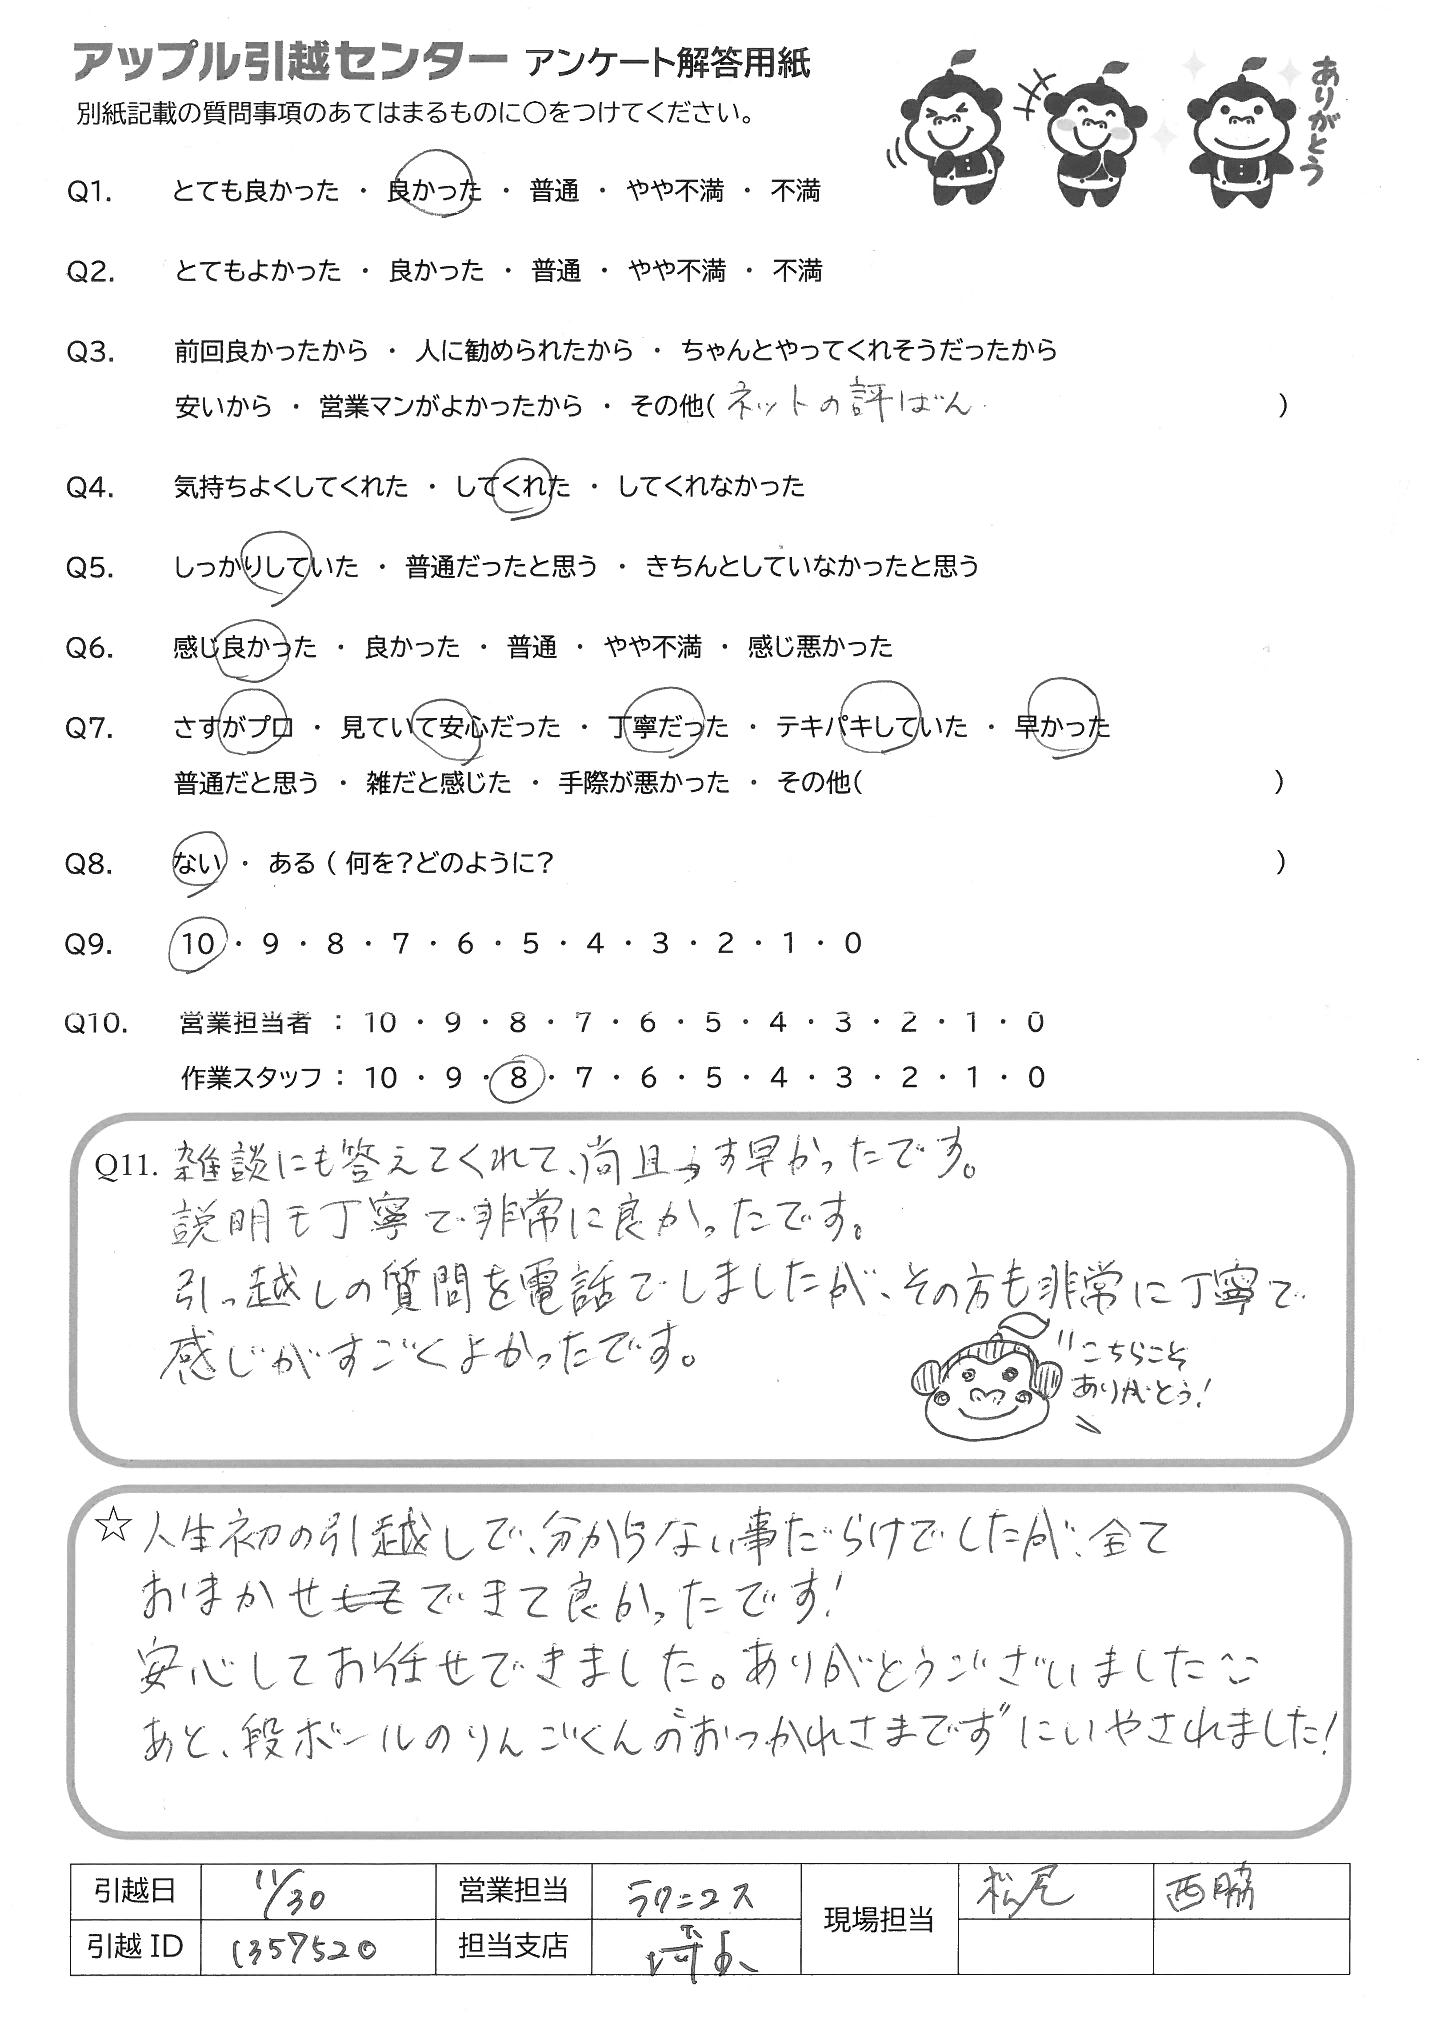 アップル引越センター アンケート解答用紙
別紙記載の質問事項のあてはまるものに○をつけてください。
ありがとう
Q1. とても良かった ・ 良かった ・ 普通 ・ やや不満 ・ 不満
Q2. とてもよかった ・ 良かった ・ 普通 ・ やや不満 ・ 不満
Q3. 前回良かったから ・ 人に勧められたから ・ ちゃんとやってくれそうだったから
安いから ・ 営業マンがよかったから ・ その他( ネットの評ばん )
Q4. 気持ちよくしてくれた ・ してくれた ・ してくれなかった
Q5. しっかりしていた ・ 普通だったと思う ・ きちんとしていなかったと思う
Q6. 感じ良かった ・ 良かった ・ 普通 ・ やや不満 ・ 感じ悪かった
Q7. さすがプロ ・ 見ていて安心だった ・ 丁寧だった ・ テキパキしていた ・ 早かった
普通だと思う ・ 雑だと感じた ・ 手際が悪かった ・ その他( )
Q8. ない ・ ある ( 何を?どのように? )
Q9. 10 ・ 9 ・ 8 ・ 7 ・ 6 ・ 5 ・ 4 ・ 3 ・ 2 ・ 1 ・ 0
Q10. 営業担当者 : 10 ・ 9 ・ 8 ・ 7 ・ 6 ・ 5 ・ 4 ・ 3 ・ 2 ・ 1 ・ 0
作業スタッフ : 10 ・ 9 ・ 8 ・ 7 ・ 6 ・ 5 ・ 4 ・ 3 ・ 2 ・ 1 ・ 0
Q11. 雑談にも答えてくれて、尚且つす早かったです。
説明も丁寧で非常に良かったです。
引っ越しの質問を電話でしましたが、その方も非常に丁寧で
感じがすごくよかったです。
"こちらこそ
ありがとう!
☆人生初の引越しで、分からない事だらけでしたが、全て
おまかせできて良かったです!
安心してお任せできました。ありがとうございました
あと、段ボールのりんごくんの"おつかれさまです"にいやされました!
引越日 11/30 営業担当 ラクニコス 現場担当 松尾 西脇
引越 ID 1357520 担当支店 埼玉